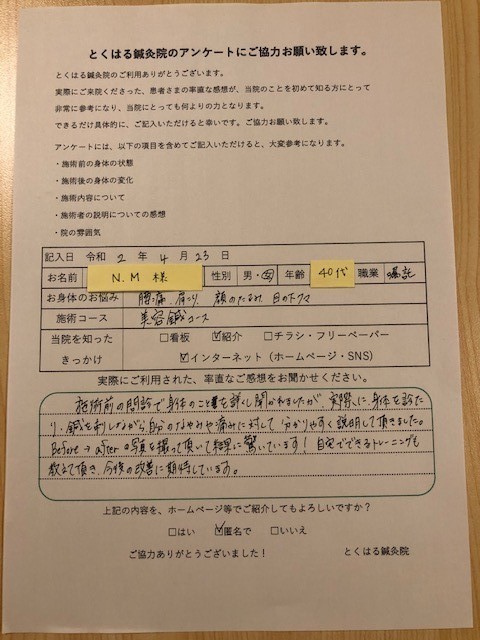 とくはる鍼灸院のアンケートにご協力お願い致します。
とくはる鍼灸院のご利用ありがとうございます。
実際にご来院くださった、患者さまの率直な感想が、当院のことを初めて知る方にとって
非常に参考になり、当院にとっても何よりの力となります。
できるだけ具体的に、ご記入いただけると幸いです。ご協力お願い致します。
アンケートには、以下の項目を含めてご記入いただけると、大変参考になります。
・施術前の身体の状態
・施術後の身体の変化
・施術内容について
・施術者の説明についての感想
・院の雰囲気
記入日 令和 2 年 4 月 23 日
お名前 N.M 様 性別 男・女 年齢 40代 職業 嘱託
お身体のお悩み 腰痛、肩こり、顔のたるみ、目の下クマ
施術コース 美容鍼コース
当院を知った □看板 ☑紹介 □チラシ・フリーペーパー
きっかけ ☑インターネット（ホームページ・SNS）
実際にご利用された、率直なご感想をお聞かせください。
施術前の問診で身体のこと等を詳しく聞かれましたが、実際に、身体を診た
り、鍼を刺しながら、自分のなやみや痛みに対して分かりやすく説明して頂きました。
Before → afterの写真を撮って頂いて結果に驚いています！自宅でできるトレーニングも
教えて頂き、今後の改善に期待しています。
上記の内容を、ホームページ等でご紹介してもよろしいですか？
□はい ☑匿名で □いいえ
ご協力ありがとうございました！ とくはる鍼灸院